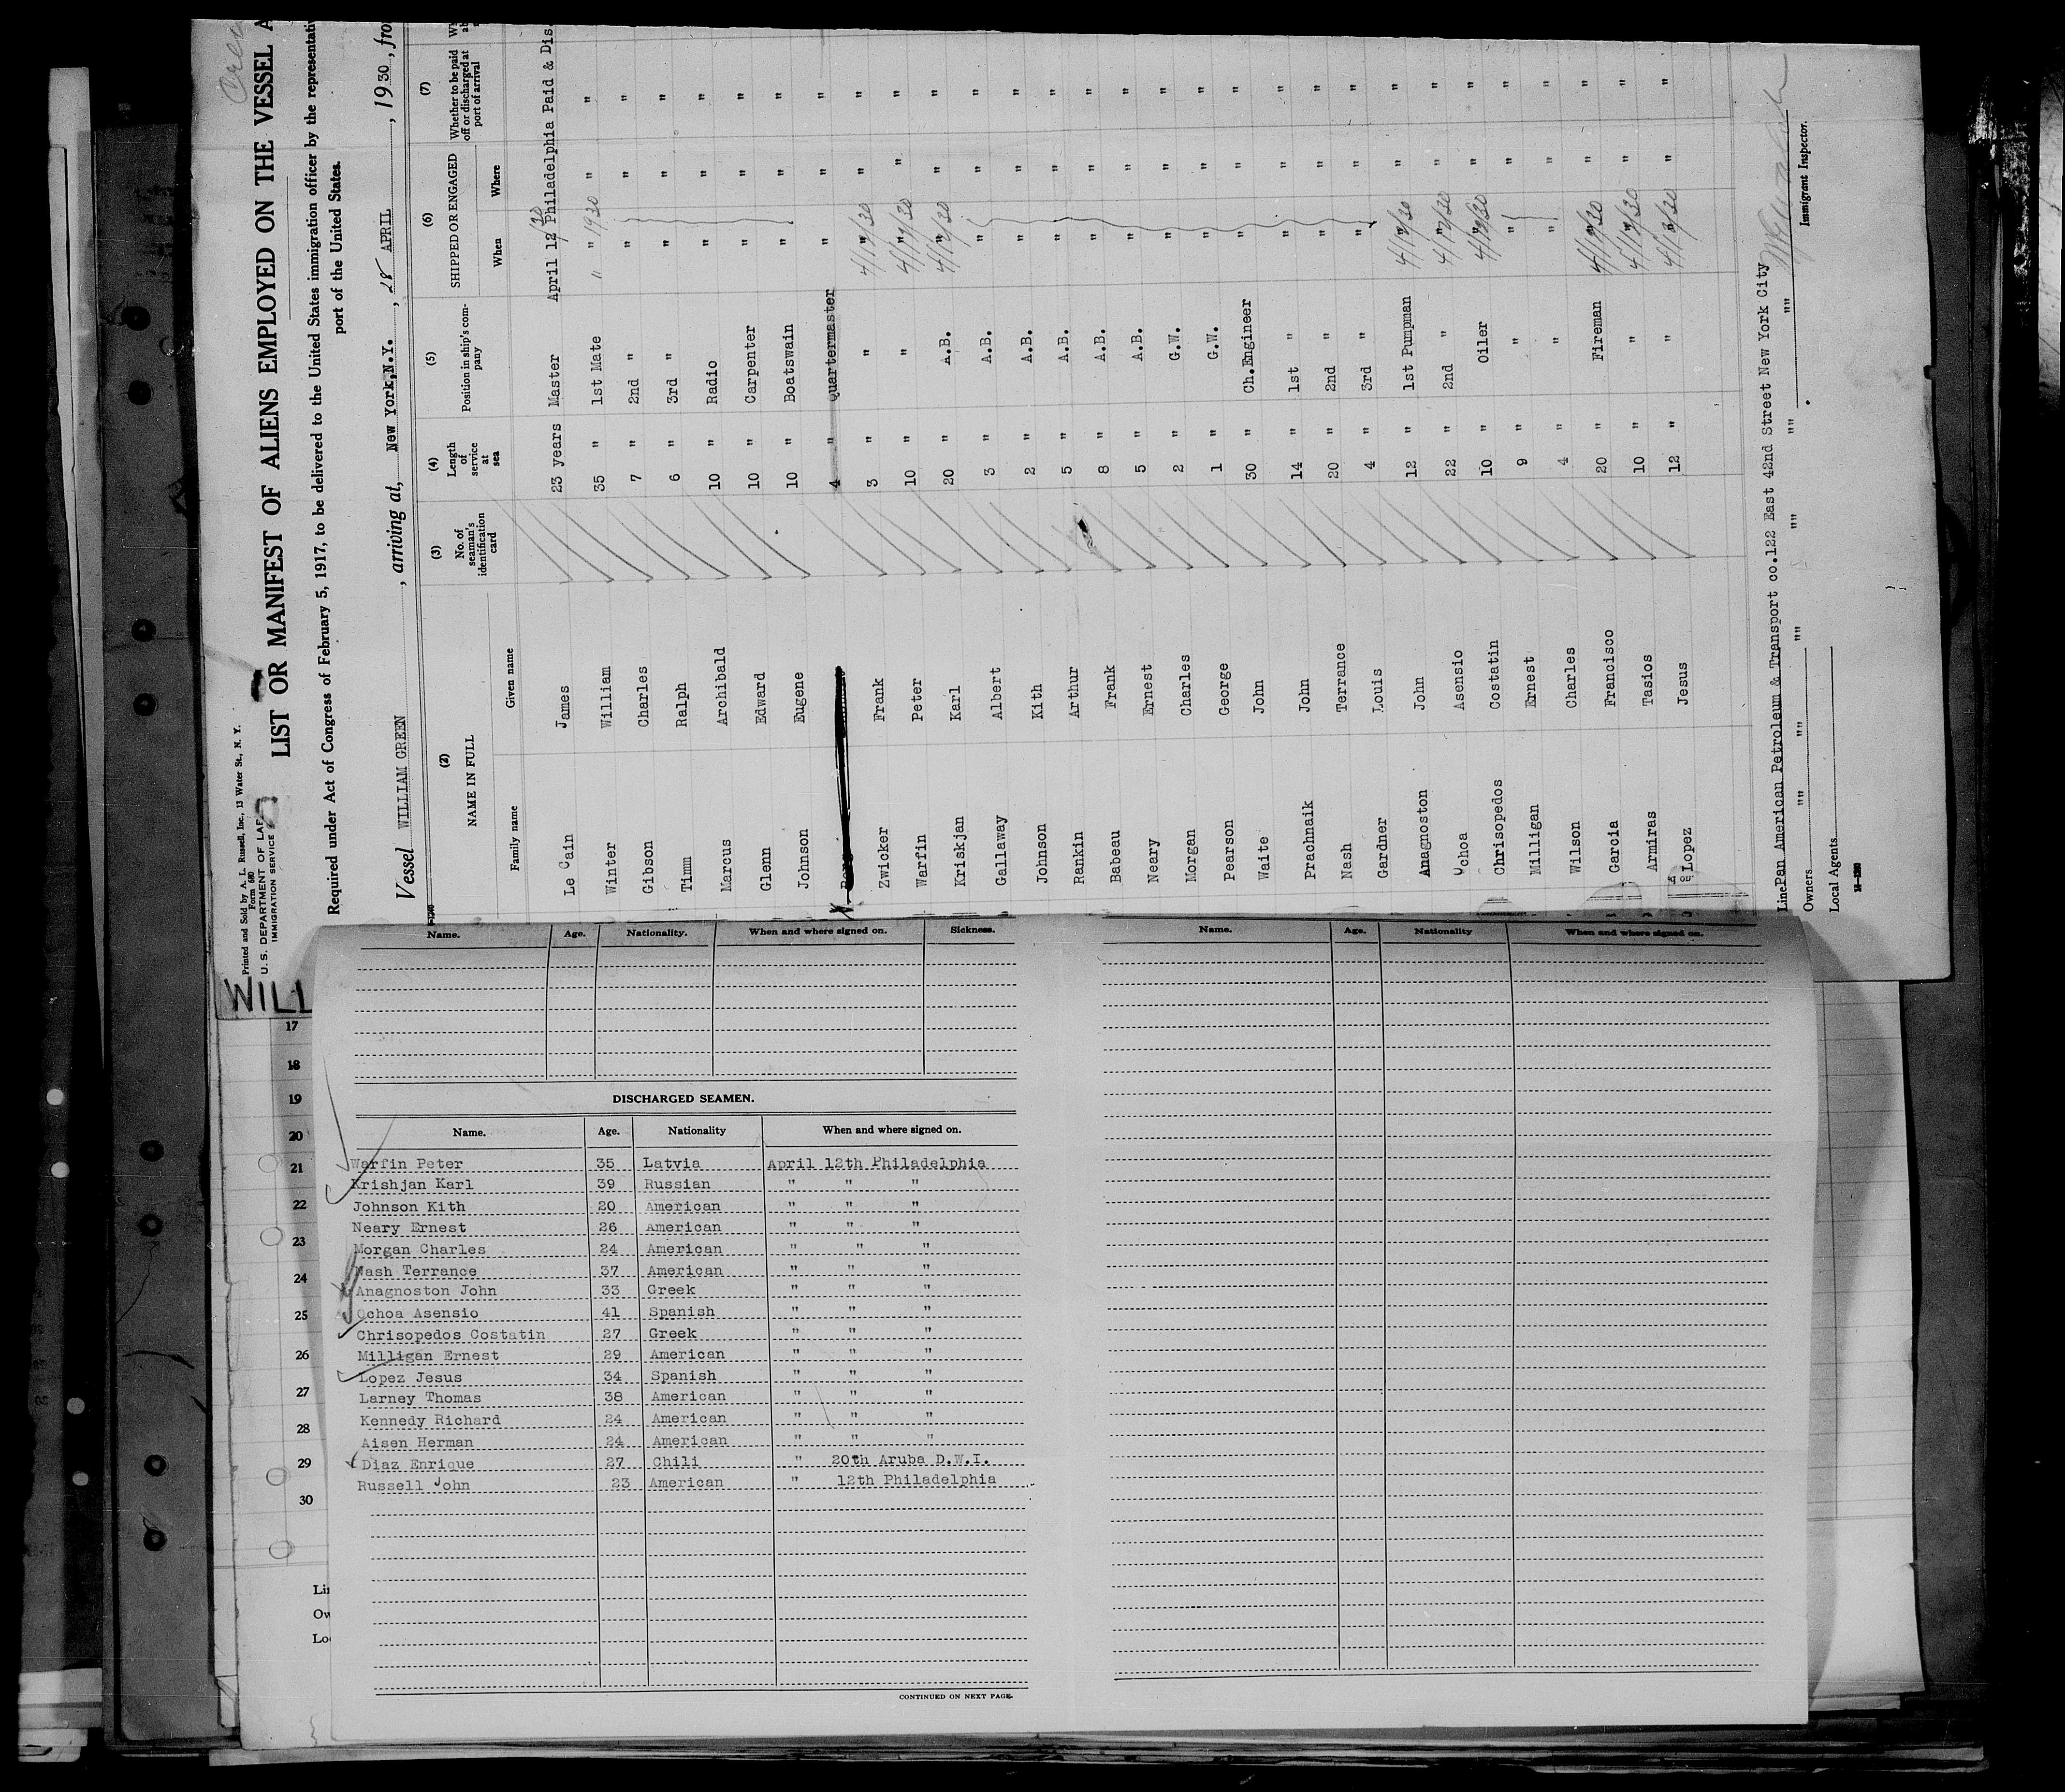 Printed and Sold by A. L. Russell, Inc., 13 Water St., N. Y.
Form 680
U. S. DEPARTMENT OF LAB
IMMIGRATION SERVICE
LIST OR MANIFEST OF ALIENS EMPLOYED ON THE VESSEL A
Required under Act of Congress of February 5, 1917, to be delivered to the United States immigration officer by the representati
port of the United States.
Vessel WILLIAM GREEN, arriving at, New York,N.Y., 28 APRIL, 1930, fro
(2) (3) (4) (5) (6) (7)
NAME IN FULL No. of seaman's identification card Length of service at sea Position in ship's company SHIPPED OR ENGAGED Whether to be paid off or discharged at port of arrival
Family name Given name When Where
Le Cain James 23 years Master April 12 /30 Philadelphia Paid & Dis.
Winter William 35 " 1st Mate " " 1930 " "
Gibson Charles 7 " 2nd " " " "
Timm Ralph 6 " 3rd " " " "
Marcus Archibald 10 " Radio " " "
Glenn Edward 10 " Carpenter " " "
Johnson Eugene 10 " Boatswain " " "
4 " Quartermaster " " "
Zwicker Frank 3 " " 4/12/30 " "
Warfin Peter 10 " " 4/12/30 " "
Kriskjan Karl 20 " A.B. 4/12/30 " "
Gallaway Albert 3 " A.B. " " "
Johnson Kith 2 " A.B. " " "
Rankin Arthur 5 " A.B. " " "
Babeau Frank 8 " A.B. " " "
Neary Ernest 5 " A.B. " " "
Morgan Charles 2 " G.W. " " "
Pearson George 1 " G.W. " " "
Waite John 30 " Ch.Engineer " " "
Prachnaik John 14 " 1st " " " "
Nash Terrance 20 " 2nd " " " "
Gardner Louis 4 " 3rd " " " "
Anagnoston John 12 " 1st Pumpman 4/12/30 " "
Ochoa Asensio 22 " 2nd " 4/12/30 " "
Chrisopedos Costatin 10 " Oiler 4/12/30 " "
Milligan Ernest 9 " " " " "
Wilson Charles 4 " " " " "
Garcia Francisco 20 " Fireman 4/12/30 " "
Armiras Tasios 10 " " 4/12/30 " "
Lopez Jesus 12 " " 4/12/30 " "
Line Pan American Petroleum & Transport co.122 East 42nd Street New York City
Owners "" "" "" "" "" ""
Local Agents
Immigrant Inspector.
WILL
Name. Age. Nationality. When and where signed on. Sickness.
DISCHARGED SEAMEN.
Name. Age. Nationality When and where signed on.
Warfin Peter 35 Latvia April 12th Philadelphia
Krishjan Karl 39 Russian " " "
Johnson Kith 20 American " " "
Neary Ernest 26 American " " "
Morgan Charles 24 American " " "
Nash Terrance 37 American " " "
Anagnoston John 33 Greek " " "
Ochoa Asensio 41 Spanish " " "
Chrisopedos Costatin 27 Greek " " "
Milligan Ernest 29 American " " "
Lopez Jesus 34 Spanish " " "
Larney Thomas 38 American " " "
Kennedy Richard 24 American " " "
Aisen Herman 24 American " " "
Diaz Enrique 27 Chili " 20th Aruba D.W.I.
Russell John 23 American " 12th Philadelphia
CONTINUED ON NEXT PAGE.
Name. Age. Nationality When and where signed on.
17
18
19
20
21
22
23
24
25
26
27
28
29
30
Lin
Ow
Loc